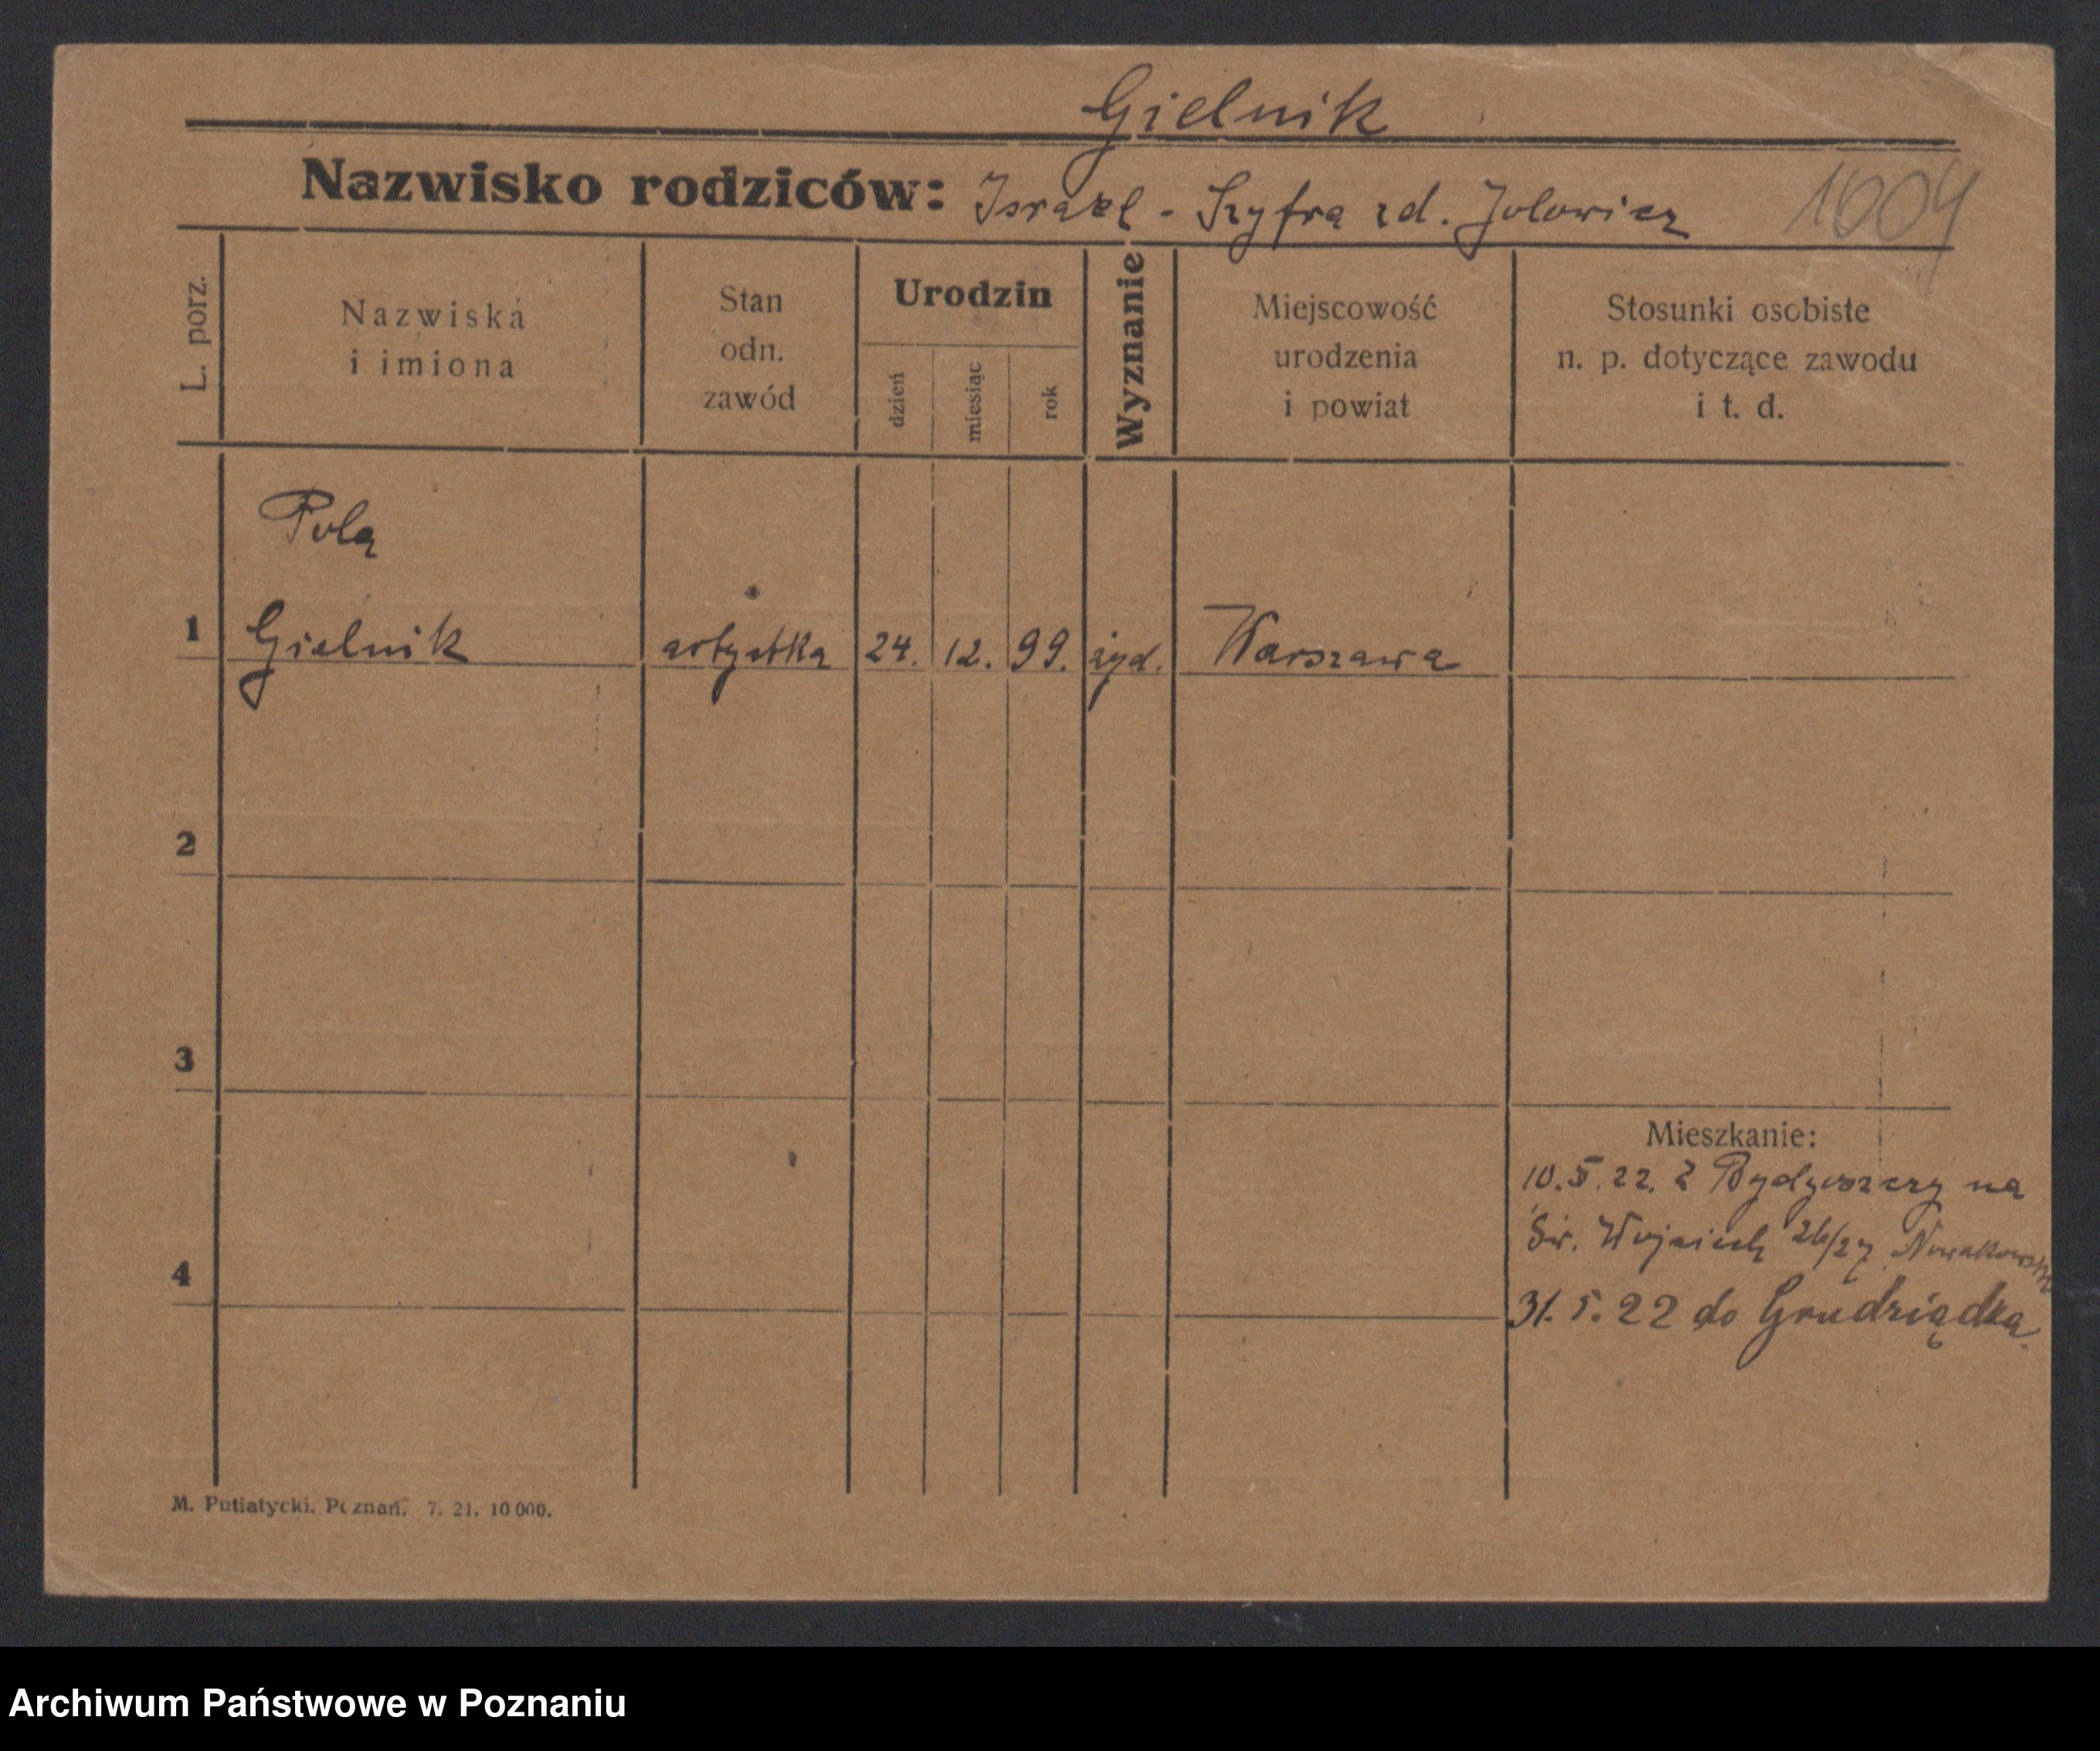 Gielnik
Nazwisko rodziców: Israel - Szyfra zd. Jolowicz 1004
L. porz.
Nazwiska
i imiona
Stan
odn.
zawód
Urodzin
dzień
miesiąc
rok
Wyznanie
Miejscowość
urodzenia
i powiat
Stosunki osobiste
n. p. dotyczące zawodu
i t. d.
Pola
1 Gielnik artystka 24. 12. 99. żyd. Warszawa
2
3
4
Mieszkanie:
10.5.22. z Bydgoszczy na
Św. Wojciech 26/27
31.5.22 do Grudziądza
M. Putiatycki. Poznań. 7. 21. 10 000.
Archiwum Państwowe w Poznaniu